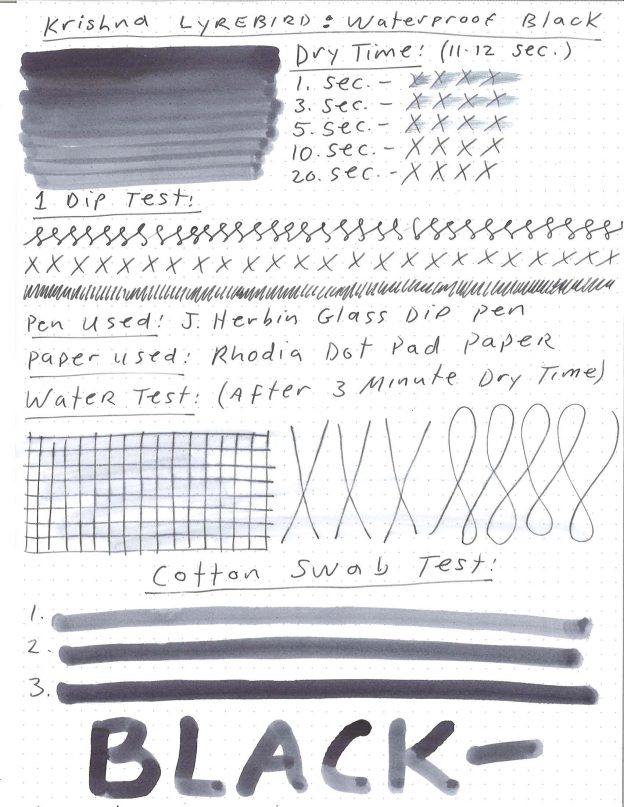 Krishna LYREBIRD: Waterproof Black
Dry Time: (11-12 sec.)
1. sec. - X X X X
3. sec. - X X X X
5. sec. - X X X X
10. sec. - X X X X
20. sec. - X X X X
1 Dip Test:
X X X X X X X X X X X X X X X X X X X X X X X X X
Pen Used: J. Herbin Glass Dip Pen
Paper used: Rhodia Dot Pad Paper
Water Test: (After 3 Minute Dry Time)
X X X
Cotton Swab Test:
1.
2.
3.
BLACK-